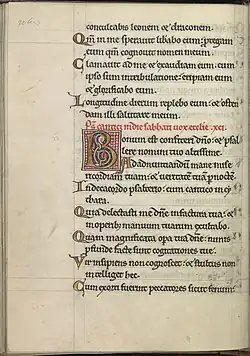 conculcabis leonem et draconem.
Qm̄ in me speravit liberabo eum: protegam
eum qm̄ cognovit nomen meum.
Clamavit ad me et exaudiam eum: cum
ipso sum in tribulatione: eripiam eum
et glificabo eum.
Longitudine dierum replebo eum: et osten
dam illi salutare meum.
Ps cantici in die sabbati vox ecclie. xci.
Bonum est confiteri dn̄o: et psal
lere nomini tuo altissime.
Ad adnuntiandū mane mise
ricordiam tuam: et veritatē tuā p noctē.
In decacordo psalterio: cum cantico in cy
thara.
Quia delectasti me dn̄e in factura tua: et
in operib; manuum tuarum exultabo.
Quam magnificata opa tua dn̄e: nimis
pfunde facte sunt cogitationes tue.
Vir insipiens non cognoscet: et stultus non
intelliget hec.
Cum exorti fuerint peccatores sicut fenum: